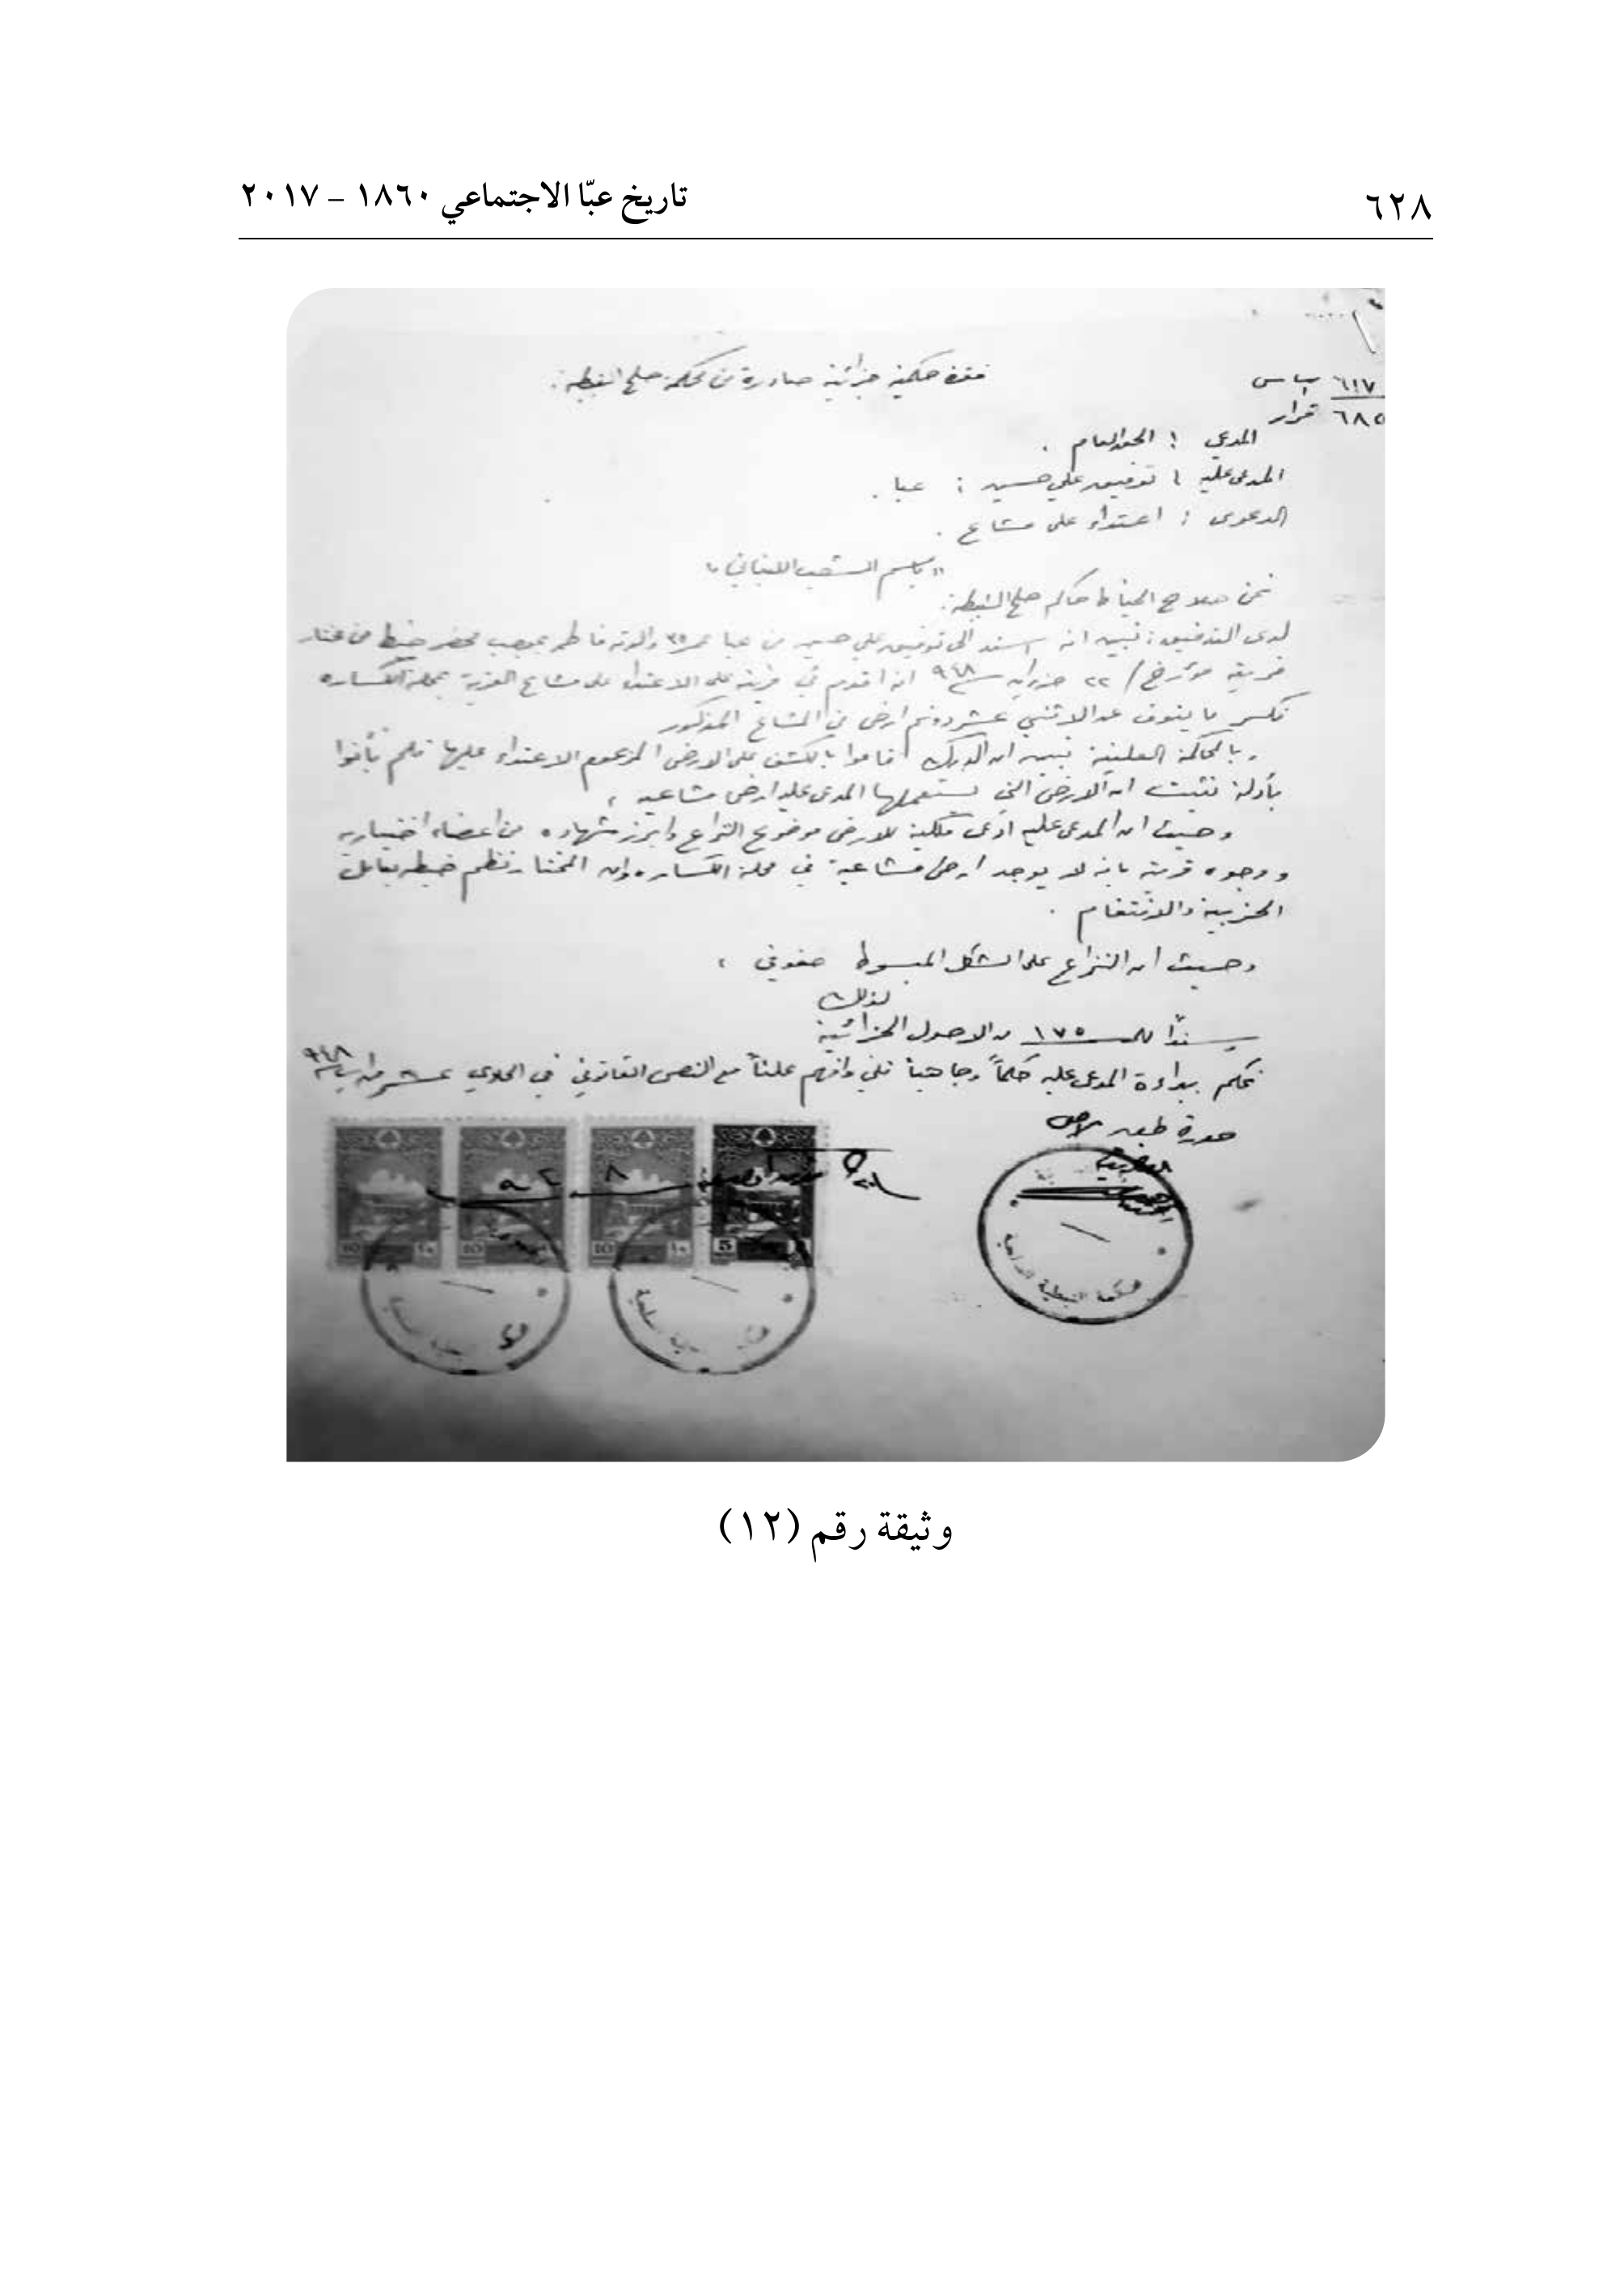 ٦٢٨
تاريخ عبّا الاجتماعي ١٨٦٠ – ٢٠١٧
٦١٧ اساس
٦٨٥ قرار
فقرة حكمية جزائية صادرة من محكمة صلح النبطية.
المدعي : الحق العام .
المدعى عليه : توفيق علي حسين : عبا .
الدعوى : اعتداء على مشاع .
"باسم الشعب اللبناني"
نحن صلاح الخياط حاكم صلح النبطية:
لدى التدقيق : تبين انه اسند الى توفيق علي حسين من عبا عمره ٣٥ والدته فاطمه بموجب محضر ضبط من مختار
قريته مؤرخ / ٢٢ حزيران سنة ٩٤٨ انه اقدم في قريته على الاعتداء على مشاع القرية بمحلة الكساره
فكسر ما ينوف عن الاثني عشر دونم ارض من المشاع المذكور
وبالمحاكمة العلنية تبين ان الدرك قاموا بالكشف على الارض المزعوم الاعتداء عليها فلم يأتوا
بأدلة تثبت ان الارض التي يستعملها المدعى عليه ارض مشاعية ،
وحيث ان المدعى عليه ادعى ملكية للارض موضوع النزاع وابرز شهاده من اعضاء اختيارية
ووجوه قريته بانه لا يوجد ارض مشاعية في محلة الكساره وان المختار نظم ضبطه بعامل
الحزبية والانتقام .
وحيث ان النزاع على الشكل المبسوط حقوقي ،
لذلك
وسنداً للمادة ١٧٥ من الاصول الجزائية
نحكم ببراءة المدعى عليه حكماً وجاهياً تلي وافهم علناً مع النص القانوني في الحادي عشر من آب سنة ٩٤٨
صورة طبق الاصل
٨
5
10 ١٠
10
10 ١٠
محكمة النبطية الصلحية
وثيقة رقم (١٢)